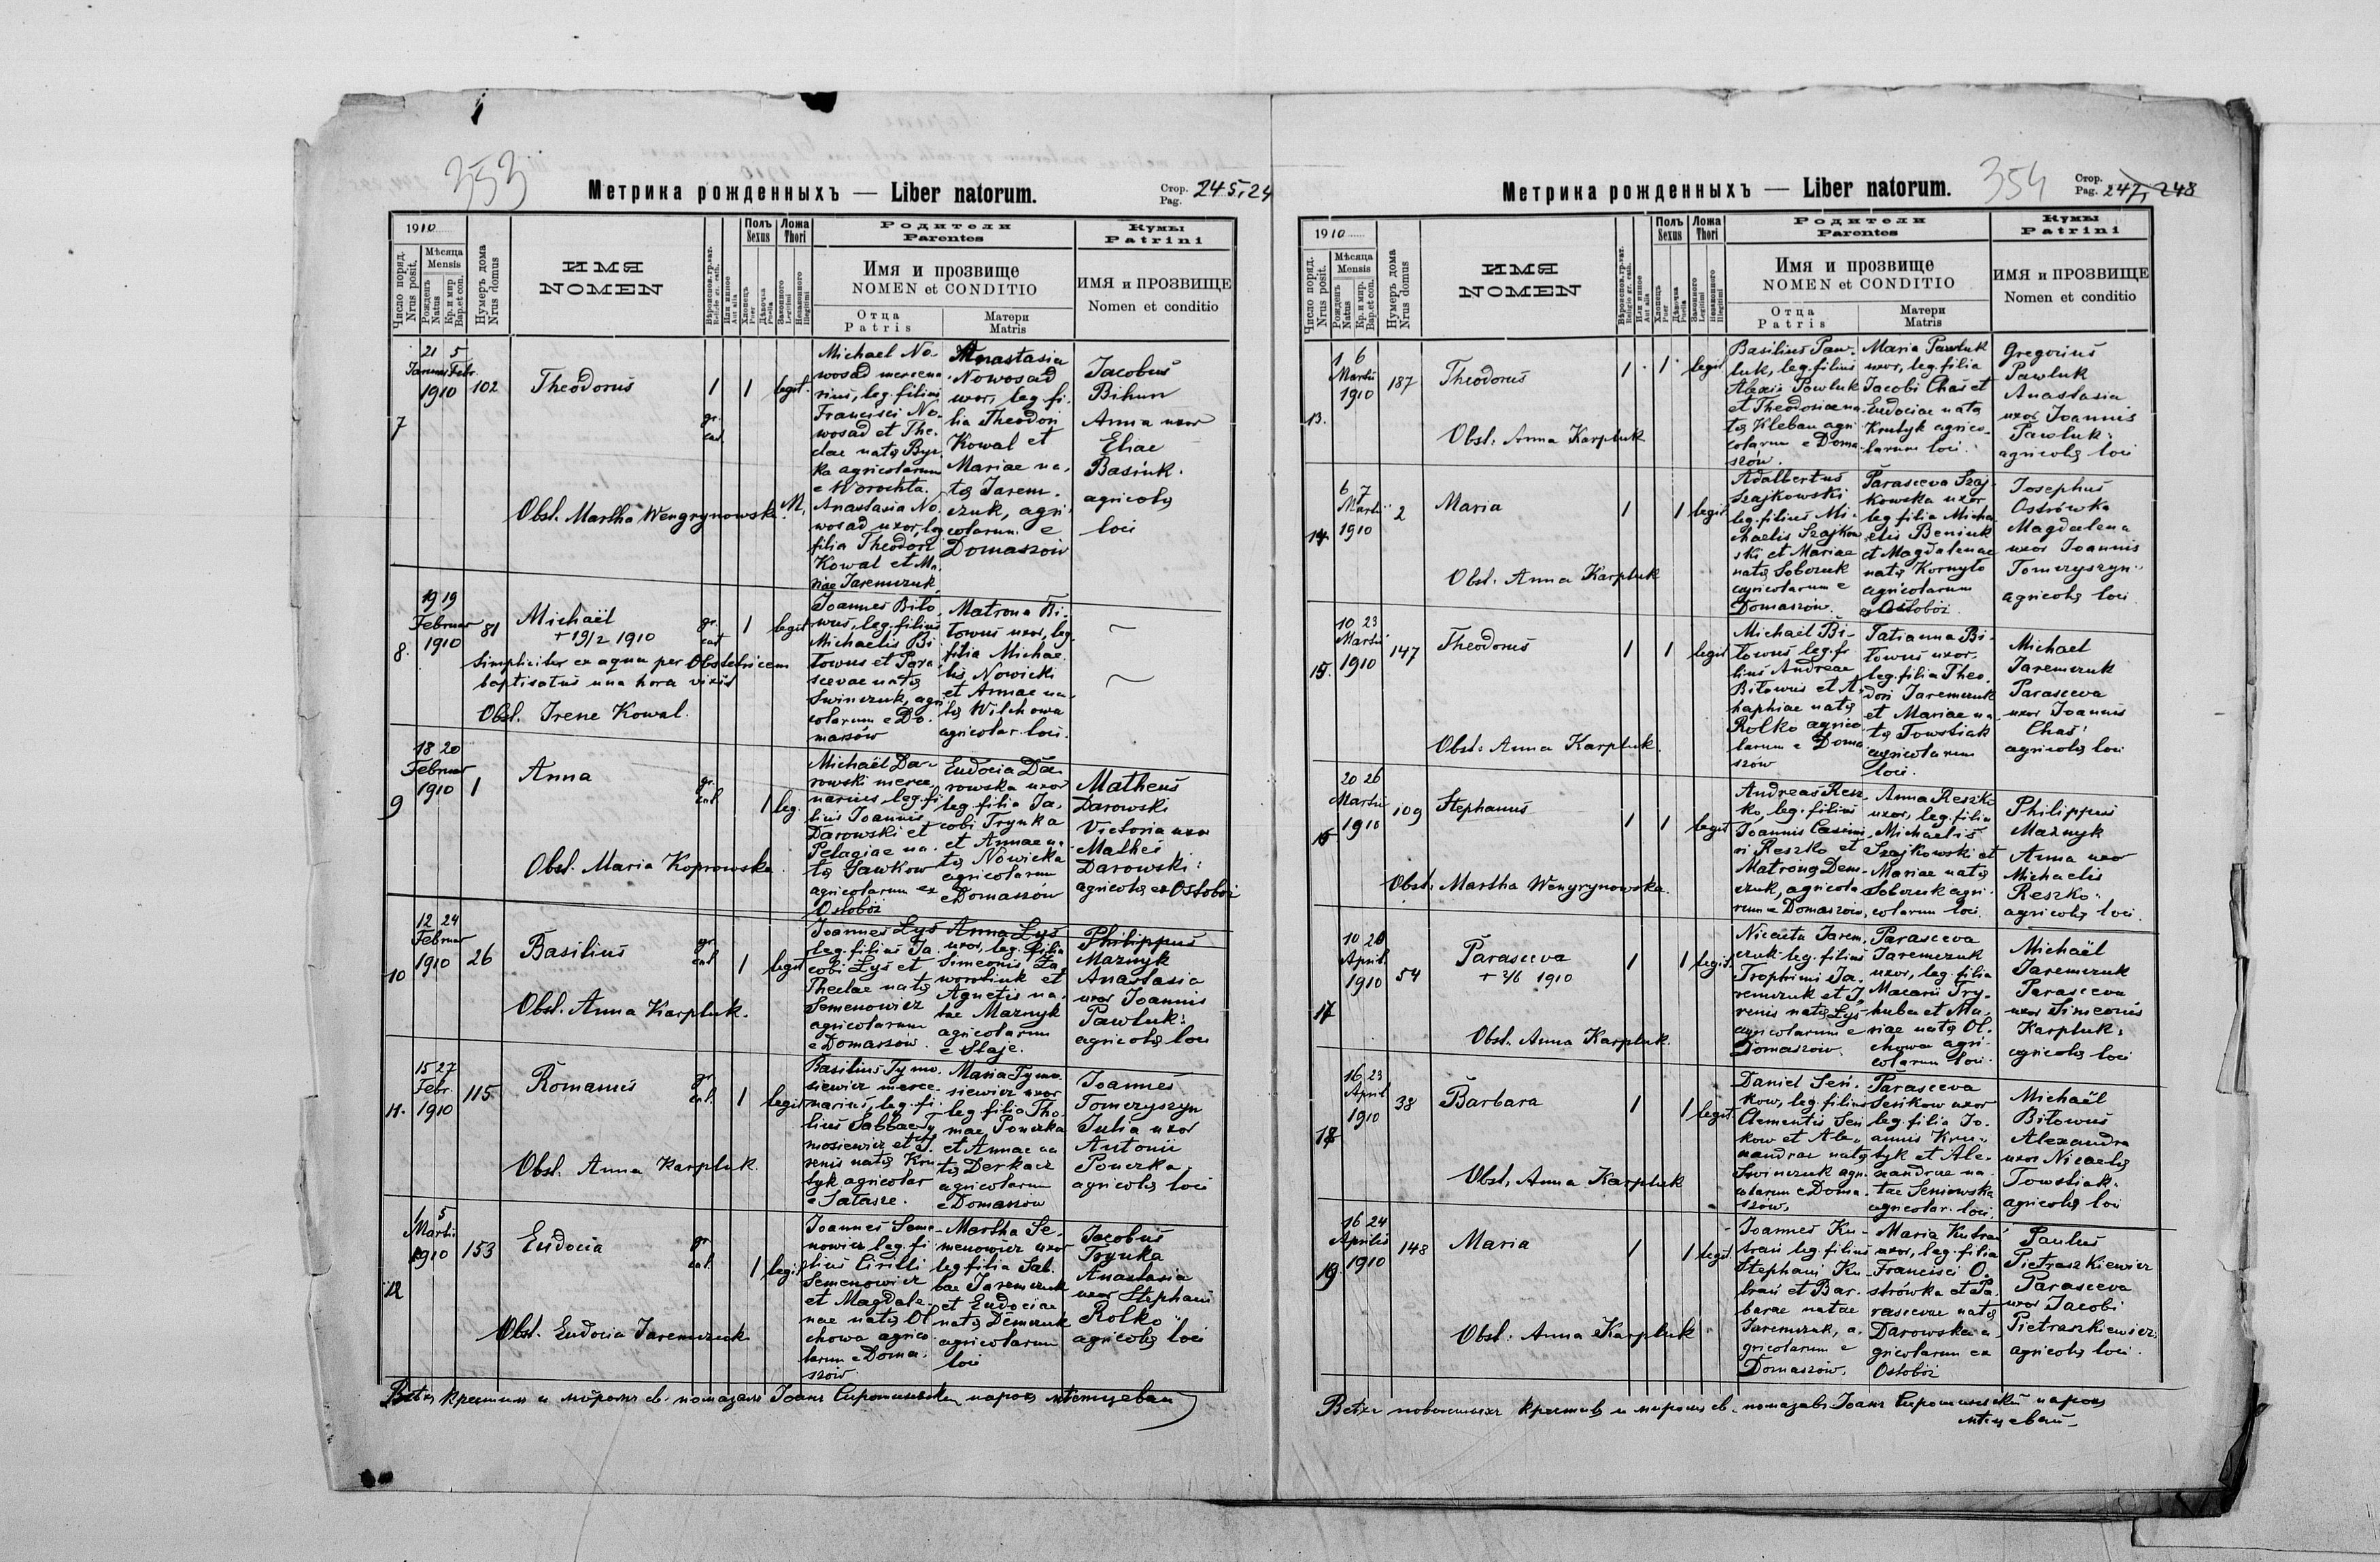 353
Метрика рожденныхъ — Liber natorum.
Стор. Pag. 245, 24
1910
Число поряд. Nrus posit.
Мѣсяца Mensis
Рожденъ Natus
Кр. и мир. Bap. et con.
Нумеръ дома Nrus domus
ИМЯ
NOMEN
Полъ Sexus
Ложа Thori
Родители
Parentes
Имя и прозвище
NOMEN et CONDITIO
Отца
Patris
Матери
Matris
Кумы
Patrini
ИМЯ и ПРОЗВИЩЕ
Nomen et conditio
7
21 5
Januar Febr.
1910
102
Theodorus
gr. cat.
1
1
legit.
Obst. Martha Wengrynowska
Michael No-
wosad mercena
rius, leg. filius
Francisci No-
wosad et The-
clae natę Byr-
ka agricolarum
e Worochta.
M. Anastasia No-
wosad uxor, leg
filia Theodori
Kowal et Ma-
riae Jaremczuk
Anastasia
Nowosad
uxor, leg. fi-
lia Theodori
Kowal et
Mariae na-
tę Jarem-
czuk, agri-
colarum e
Domaszów
Jacobus
Bihun
Anna uxor
Eliae
Basiuk
agricolę
loci
8.
19 19
Februar
1910
81
Michaël
+ 19/2 1910
gr. cat
1
legit
simpliciter ex aqua per Obstetricem
baptisatus una hora vixit
Obst. Irene Kowal.
Joannes Biło
wus, leg. filius
Michaelis Bi
łowus et Para
scevae natę
Swinczuk, agri
colarum e Do-
maszów
Matrona Bi-
łowus uxor, leg.
filia Michae
lis Nowicki
et Annae na-
tę Wilchowa
agricolar. loci.
9
18 20
Februar
1910
1
Anna
gr. cat.
1
leg.
Obst. Maria Koprowska
Michaël Da-
rowski merce
narius, leg. fi
lius Joannis
Darowski et
Pelagiae na-
tę Sawkow
agricolarum ex
Ostobóż
Eudocia Da-
rowska uxor
leg. filia Ja-
cobi Trynka
et Annae na-
tę Nowicka
agricolarum
e Domaszów
Matheus
Darowski
Victoria uxor
Mathei
Darowski:
agricolę ex Ostobóż
10
12 24
Februar
1910
26
Basilius
gr. cat
1
legit
Obst. Anna Karpluk.
Joannes Łyś
leg. filius Ja-
cobi Łyś et
Theclae natę
Semenowicz
agricolarum
e Domaszów.
Anna Łyś
uxor, leg. filia
Simeonis Za
worotiuk et
Agnetis na-
tae Maznyk
agricolarum
e Staje.
Philippus
Maznyk
Anastasia
uxor Joannis
Pawluk:
agricolę loci
11.
15 27
Febr.
1910
115
Romanus
gr. cat.
1
legit
Obst. Anna Karpluk.
Basilius Tymo-
siewicz merce-
narius, leg. fi-
lius Sabbae Ty
mosiewicz et I-
renis natę Kru
tyk agricolar
e Satasze.
Maria Tymo-
siewicz uxor
leg filia Tho-
mae Ponczka
et Annae na
tę Derkacz
agricolarum
e Domaszów
Joannes
Tomczyszyn
Julia uxor
Antonii
Ponczka
agricolę loci
12
1 5
Martii
1910
153
Eudocia
gr. cat.
1
legit
Obst. Eudocia Jaremczuk
Joannes Seme-
nowicz leg. fi
lius Cirilli
Semenowicz
et Magdale-
nae natę Ol
chowa agrico
larum e Doma-
szów
Martha Se-
menowicz uxor
leg filia Sab-
bae Jaremczuk
et Eudociae
natę Demczuk
agricolarum
loci
Jacobus
Trynka
Anastasia
uxor Stephani
Rolko
agricolę loci
354
Метрика рожденныхъ — Liber natorum.
Стор. Pag. 247, 248
1910
Число поряд. Nrus posit.
Мѣсяца Mensis
Рожденъ Natus
Кр. и мир. Bap. et con.
Нумеръ дома Nrus domus
ИМЯ
NOMEN
Полъ Sexus
Ложа Thori
Родители
Parentes
Имя и прозвище
NOMEN et CONDITIO
Отца
Patris
Матери
Matris
Кумы
Patrini
ИМЯ и ПРОЗВИЩЕ
Nomen et conditio
13.
1 6
Martii
1910
187
Theodorus
1
1
legit
Obst. Anna Karpluk
Basilius Paw-
luk, leg. filius
Alexii Pawluk
et Theodosiae na
tę Kleban agri
colarum e Doma
szów.
Maria Pawluk
uxor, leg. filia
Jacobi Chaś et
Eudociae natę
Krutyk agrico-
larum loci.
Gregorius
Pawluk
Anastasia
uxor Joannis
Pawluk:
agricolę loci
14.
6 7
Martii
1910
2
Maria
1
1
legit
Obst. Anna Karpluk
Adalbertus
Szajkowski
leg. filius Mi-
chaelis Szajkow
ski et Mariae
natę Sobczuk
agricolarum e
Domaszów.
Parasceva Szaj-
kowska uxor
leg filia Micha
elis Beniuk
et Magdalenae
natę Kornyło
agricolarum
e Ostobóż
Josephus
Ostrówka
Magdalena
uxor Joannis
Tomczyszyn
agricolę loci
15.
10 23
Martii
1910
147
Theodorus
1
1
legit
Obst. Anna Karpluk.
Michaël Bi-
łowus leg. fi
lius Andreae
Biłowus et A-
haphiae natę
Rolko agrico
larum e Doma
szów
Tatianna Bi-
łowus uxor,
leg. filia Theo-
dori Jaremczuk
et Mariae na
tę Towstiak
agricolarum
loci.
Michael
Jaremczuk
Parasceva
uxor Joannis
Chaś
agricolę loci
16
20 26
Martii
1910
109
Stephanus
1
1
legit
Obst. Martha Wengrynowska.
Andreas Resz-
ko, leg. filius
Joannis Casimi
ri Reszko et
Matronę Dem-
czuk, agricola
rum e Domaszów,
Anna Reszko
uxor, leg. filia
Michaelis
Szajkowski et
Mariae natę
Sobczuk agri-
colarum loci.
Philippus
Maznyk
Anna uxor
Michaelis
Reszko:
agricolę loci.
17
10 26
April.
1910
54
Parasceva
+ 2/6 1910
1
1
legit.
Obst. Anna Karpluk.
Nicaeta Jarem-
czuk leg. filius
Trophimi Ja-
remczuk et I-
renis natę Łyś
agricolarum e
Domaszów.
Parasceva
Jaremczuk
uxor, leg. filia
Macarii Try-
huba et Ma-
riae natę Ol-
chowa agri-
colarum loci.
Michaël
Jaremczuk
Parasceva
uxor Simeonis
Karpluk:
agricolę loci
18
16 23
April
1910
38
Barbara
1
1
legit.
Obst. Anna Karpluk
Daniel Seń-
kow, leg. filius
Clementis Seń
kow et Ale-
xandrae natę
Swinczuk agri-
colarum e Doma-
szów.
Parasceva
Seńkow uxor
leg. filia Jo-
annis Kru-
tyk et Ale-
xandrae na-
tae Seniowska
agricolar. loci.
Michaël
Biłowus
Alexandra
uxor Nicaetę
Towstiak.
agricolę loci
19
16 24
Aprilis
1910
148
Maria
1
1
legit.
Obst. Anna Karpluk
Joannes Ku-
trań leg. filius
Stephani Ku-
trań et Bar-
barae natae
Jaremczuk, a-
gricolarum e
Domaszów.
Maria Kutrań
uxor, leg. filia
Francisci O-
strówka et Pa-
rascevae natę
Darowska a
gricolarum ex
Ostobóż
Paulus
Pietraszkiewicz
Parasceva
uxor Jacobi
Pietraszkiewicz:
agricolę loci.